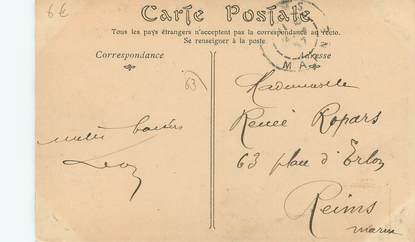 6€
Carte Postale
Tous les pays étrangers n'acceptent pas la correspondance au recto.
Se renseigner à la poste.
Correspondance
Adresse
MA
63
Mademoiselle
Renée Ropars
63 place d'Erlon
Reims
Marne
baisers